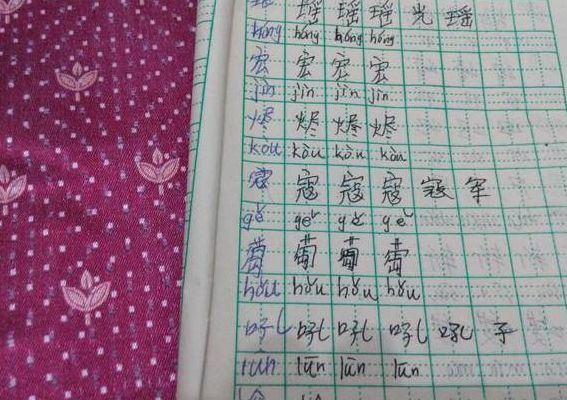 瑶 瑶 瑶 光 瑶
hóng hóng hóng hóng
宏 宏 宏 宏
jìn jìn jìn jìn
烬 烬 烬 烬
kòu kòu kòu kòu
寇 寇 寇 寇 寇 军
gě gě gě gě
hǒu hǒu hǒu hǒu
吼 吼 吼 吼 吼 子
lūn lūn lūn lūn